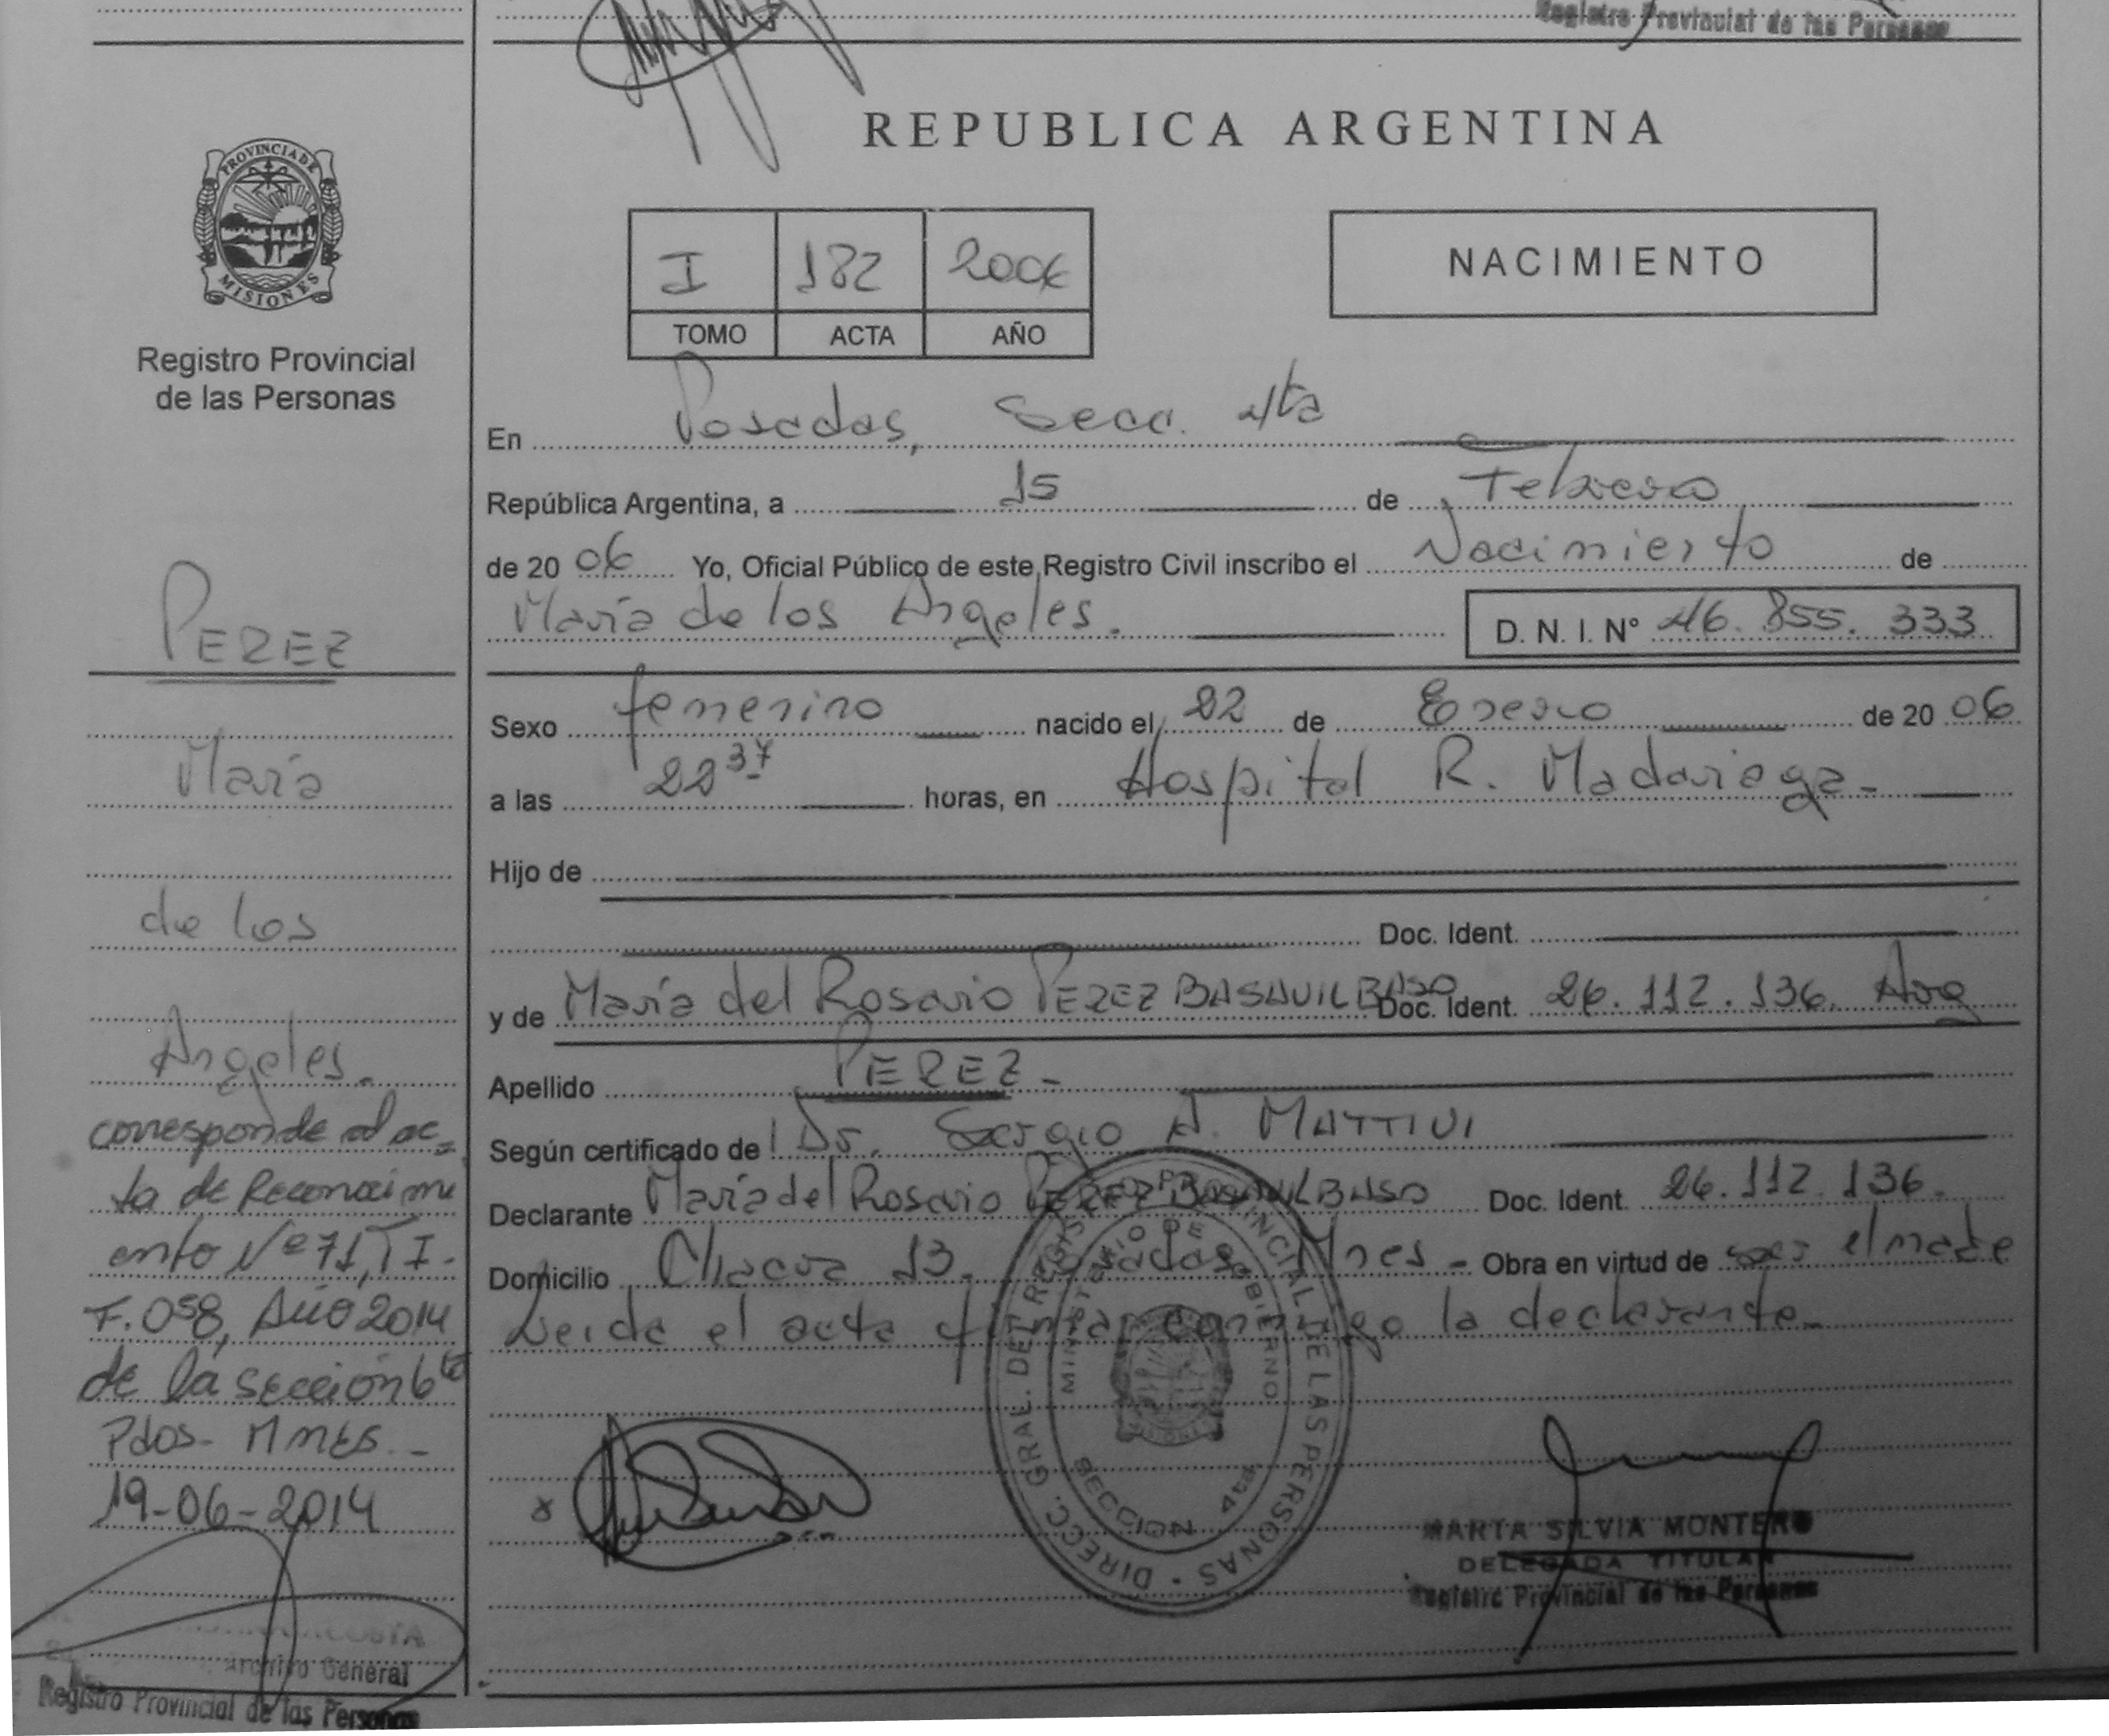 Registro Provincial de las Personas
REPUBLICA ARGENTINA
PROVINCIA DE
MISIONES
Registro Provincial
de las Personas
I 182 2006
TOMO ACTA AÑO
NACIMIENTO
En Posadas, Secc. 4ta
República Argentina, a 15 de Febrero
de 20 06 Yo, Oficial Público de este Registro Civil inscribo el Nacimiento de
María de los Angeles.
D. N. I. N° 46. 855. 333
Sexo femenino nacido el 22 de Enero de 20 06
a las 22 37 horas, en Hospital R. Madariaga-
Hijo de
Doc. Ident.
y de María del Rosario PEREZ BASAVILBASO Doc. Ident. 26.112.136. Arg
Apellido PEREZ-
Según certificado de Dr. Sergio A. MATTIVI
Declarante María del Rosario PEREZ BASAVILBASO Doc. Ident. 26.112.136.
Domicilio Chacra 13. Posadas Mnes- Obra en virtud de ser el madre
Leida el acta firman conmigo la declarante-
PEREZ
María
de los
Angeles.
corresponde al ac-
ta de Reconocimi
ento Nº 71, T I-
F. 058, Año 2014
de la sección 6ta
Pdos- Mnes.-
19-06-2014
Archivo General
Registro Provincial de las Personas
DIRECC. GRAL. DEL REGISTRO PROVINCIAL DE LAS PERSONAS
MINISTERIO DE GOBIERNO
SECCION 4ta
MARTA SILVIA MONTERO
DELEGADA TITULAR
Registro Provincial de las Personas